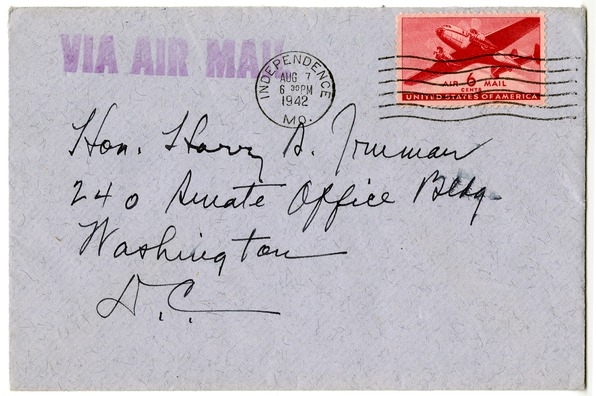 VIA AIR MAIL
INDEPENDENCE
AUG 7
6 30 PM
1942
MO.
AIR 6 MAIL
CENTS
UNITED STATES OF AMERICA
Hon. Harry S. Truman
240 Senate Office Bldg.
Washington
D.C.